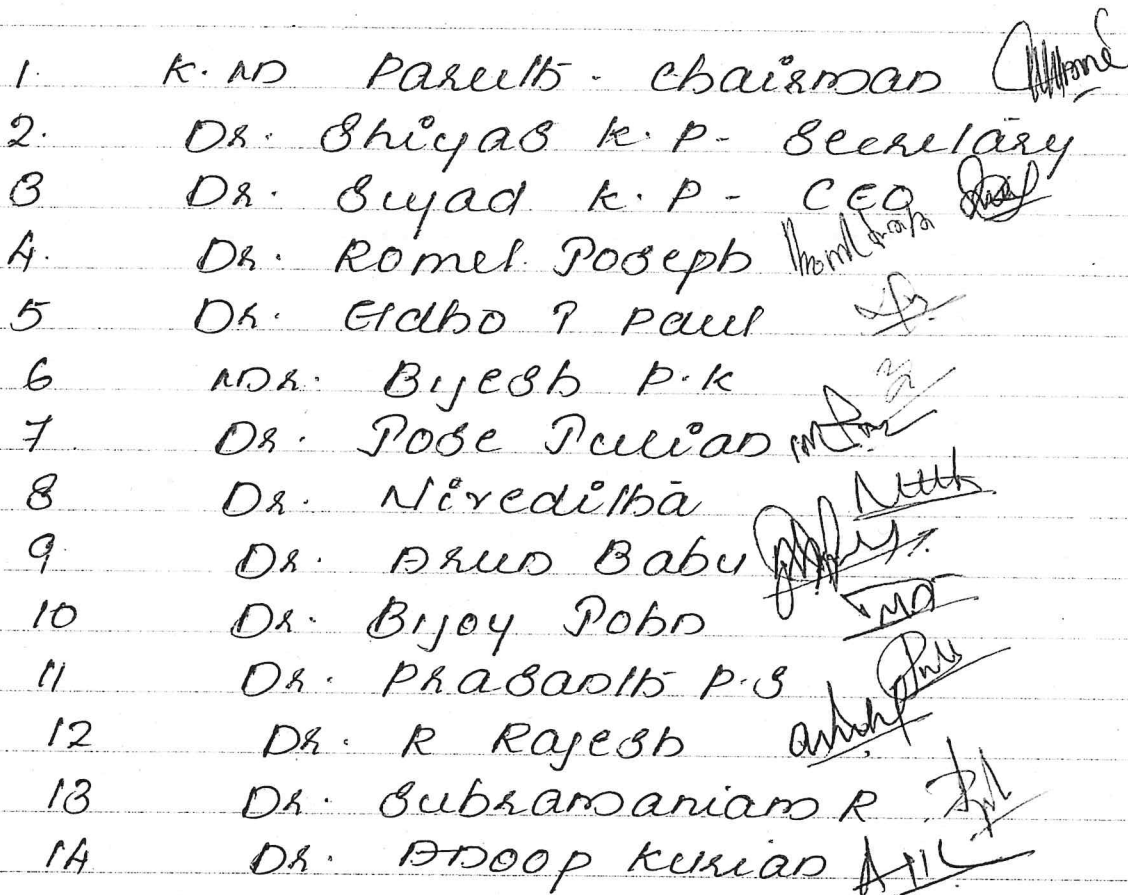 1. K. M Pareeth - Chairman
2. Dr. Shiyas K. P - Secretary
3 Dr. Siyad K. P - CEO
4. Dr. Romel Joseph
5 Dr. Eldho T Paul
6 Dr. Bijesh P.K
7 Dr. Jose Julian
8 Dr. Niveditha
9 Dr. Arun Babu
10 Dr. Bijoy John
11 Dr. Prasanth P.S
12 Dr. R Rajesh
13 Dr. Subramaniam R
14 Dr. Anoop Kurian